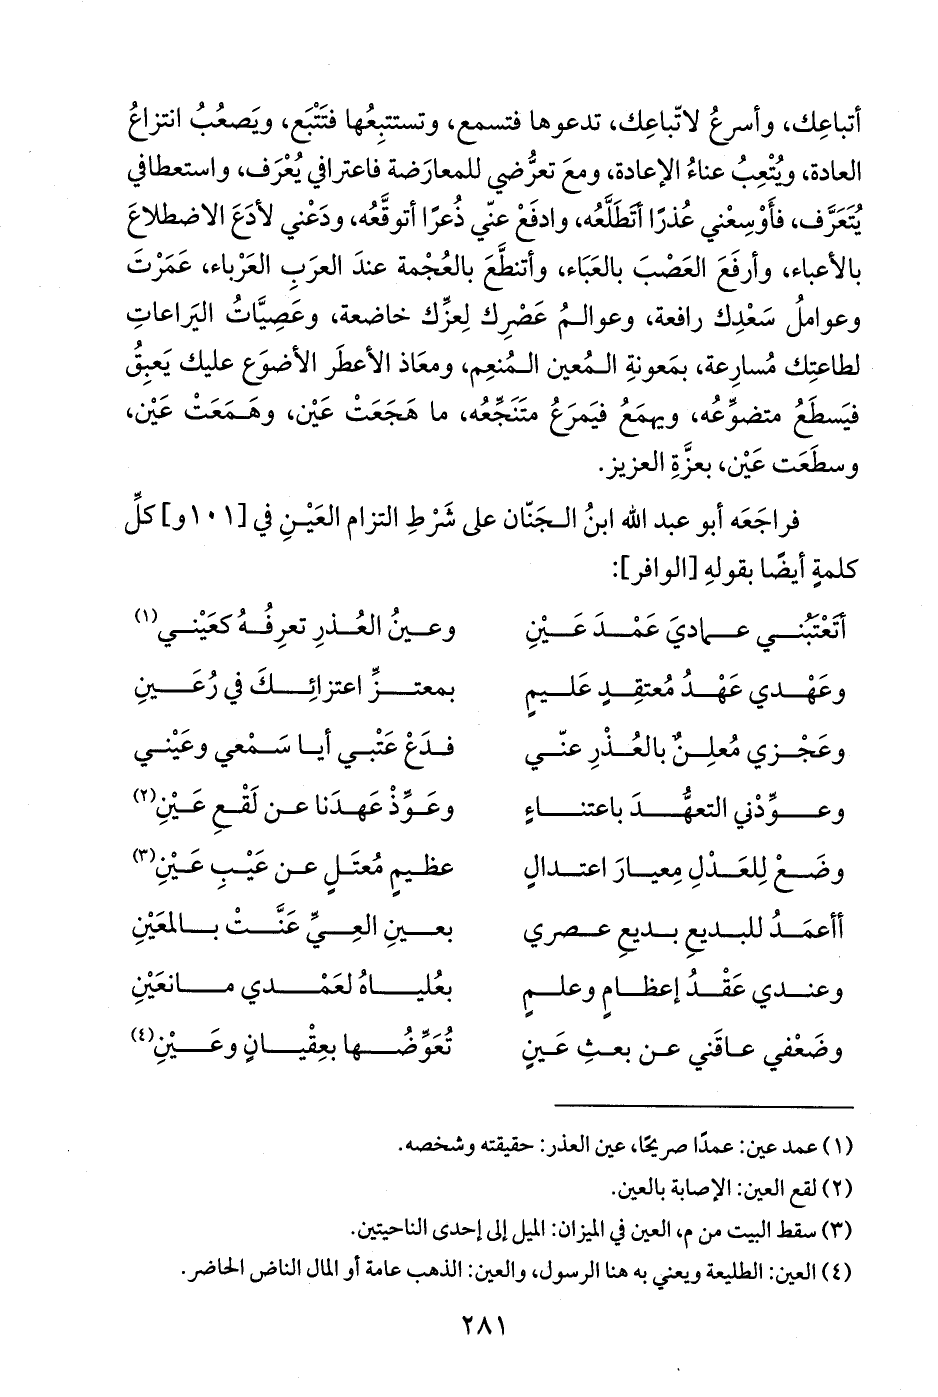 أتباعِك، وأسرعُ لاتّباعِك، تدعوها فتسمع، وتستتبِعُها فتَتْبَع، ويَصعُبُ انتزاعُ
العادة، ويُتْعِبُ عناءُ الإعادة، ومعَ تعرُّضي للمعارَضة فاعترافي يُعْرَف، واستعطافي
يُتَعَرَّف، فأَوْسِعْني عُذرًا أتطَلَّعُه، وادفَعْ عنّي ذُعرًا أتوقَّعُه، ودَعْني لأدَعَ الاضطلاعَ
بالأعباء، وأرفَعَ العَصْبَ بالعَبَاء، وأتنطَّعَ بالعُجْمة عندَ العرَبِ العَرْباء، عَمَرْتَ
وعواملُ سَعْدِك رافعة، وعوالمُ عَصْرِك لِعزِّك خاضعة، وعَصِيَّاتُ اليَراعاتِ
لطاعتِك مُسارِعة، بمَعونةِ المُعين المُنعِم، ومعَاذ الأعطَرِ الأضوَعِ عليك يَعبِقُ
فيَسطَعُ متضوِّعُه، ويهمَعُ فيَمرَعُ متَنَجِّعُه، ما هَجَعَتْ عَيْن، وهَمَعَتْ عَيْن،
وسطَعَت عَيْن، بعزَّةِ العزيز.
فراجَعَه أبو عبد الله ابنُ الجَنّان على شَرْطِ التزام العَيْنِ في [١٠١و] كلِّ
كلمةٍ أيضًا بقولهِ [الوافر]:
أتَعْتَبُني عمادي عَمْدَ عَيْنِ    وعينُ العُذرِ تعرِفُهُ كعَيْني(١)
وعَهْدي عَهْدُ مُعتقِدٍ عَليمٍ    بمعتزِّ اعتزائِكَ في رُعَينِ
وعَجْزي مُعلِنٌ بالعُذْرِ عنّي    فدَعْ عَتْبي أيا سَمْعي وعَيْني
وعوِّدْني التعهُّدَ باعتناءٍ    وعَوِّذْ عَهدَنا عن لَقْعِ عَيْنِ(٢)
وضَعْ لِلعَدْلِ مِعيارَ اعتدالٍ    عظيمٍ مُعتَلٍ عن عَيْبِ عَيْنِ(٣)
أأعمَدُ للبديعِ بديعِ عصري    بعينِ العِيِّ عَنَّتْ بالمَعَيْنِ
وعندي عَقْدُ إعظامٍ وعلمٍ    بعُلياهُ لعَمْدي مانعَيْنِ
وضَعْفي عاقَني عن بعثِ عَينٍ    تُعَوِّضُها بعِقْيانٍ وعَيْنِ(٤)
(١) عمد عين: عمدًا صريحًا، عين العذر: حقيقته وشخصه.
(٢) لقع العين: الإصابة بالعين.
(٣) سقط البيت من م، العين في الميزان: الميل إلى إحدى الناحيتين.
(٤) العين: الطليعة ويعني به هنا الرسول، والعين: الذهب عامة أو المال الناض الحاضر.
٢٨١